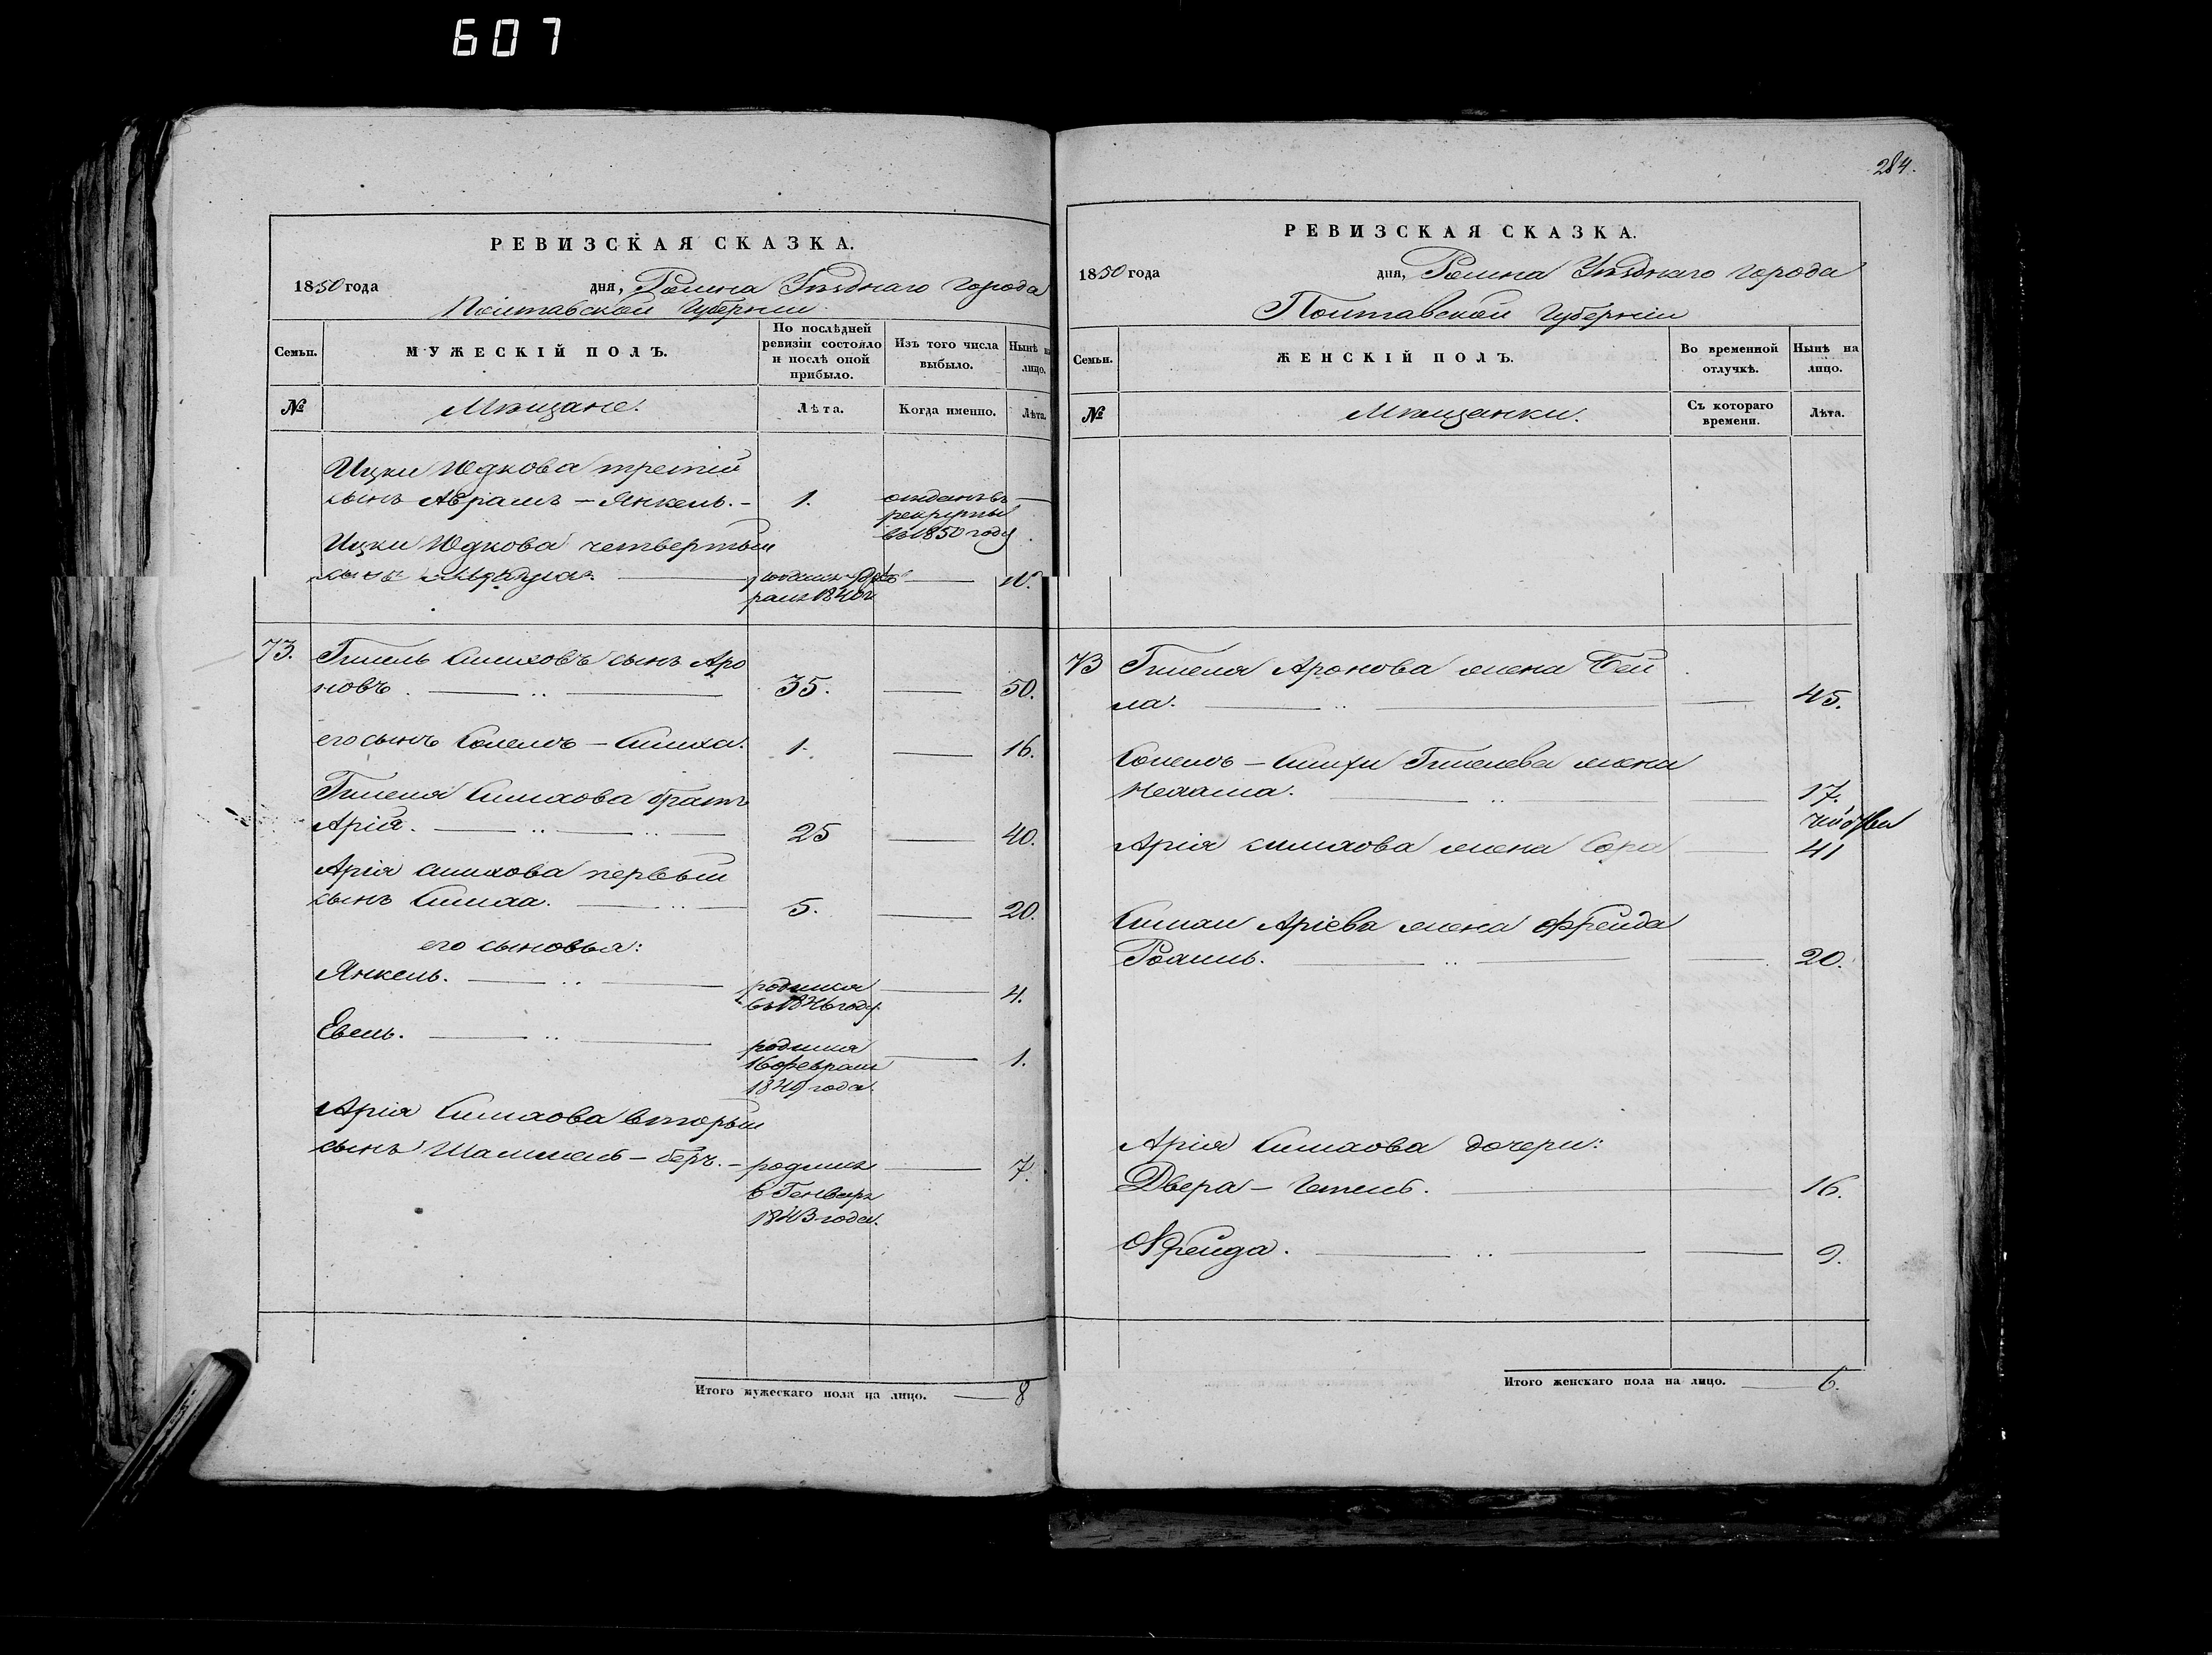 607
РЕВИЗСКАЯ СКАЗКА.
1850 года дня, Ромна Уѣзднаго города
Полтавской Губерніи
Семьи.
МУЖЕСКІЙ ПОЛЪ.
По послѣдней ревизіи состояло и послѣ оной прибыло.
Изъ того числа выбыло.
Нынѣ на лицо.
№
Мѣщане.
Лѣта.
Когда именно.
Лѣта.
Ицки Юдкова третій
сынъ Аврамъ - Янкель. - 1. отданъ въ
рекруты
въ 1850 году
Ицки Юдкова четвертый
сынъ 10.
1840
73. Гилель Симховъ сынъ Аро
новъ. 35. 50.
его сынъ - Симха. 1. 16.
Гилеля Симхова братъ
Арія. 25 40.
Арія Симхова первый
сынъ Симха. 5. 20.
его сыновья:
Янкель. родился 4.
въ 1846 году
Евель. родился 1.
16 февраля
1849 года.
Арія Симхова вторый
сынъ - Беръ. - родился 7.
6 Генваря
1843 года.
Итого мужескаго пола на лицо. 8
284.
РЕВИЗСКАЯ СКАЗКА.
1850 года дня, Ромна Уѣзднаго города
Полтавской Губерніи
Семьи.
ЖЕНСКІЙ ПОЛЪ.
Во временной отлучкѣ.
Нынѣ на лицо.
№
Мѣщанки.
Съ котораго времени.
Лѣта.
73 Гилеля Аронова жена Бей
ла. 45.
- Симхи Гилелева жена
Нехама. 17.
Арія Симхова жена Сора 41
Симхи Аріева жена Фрейда
20.
Арія Симхова дочери:
Двера - 16.
Фрейда. 9.
Итого женскаго пола на лицо. 6.